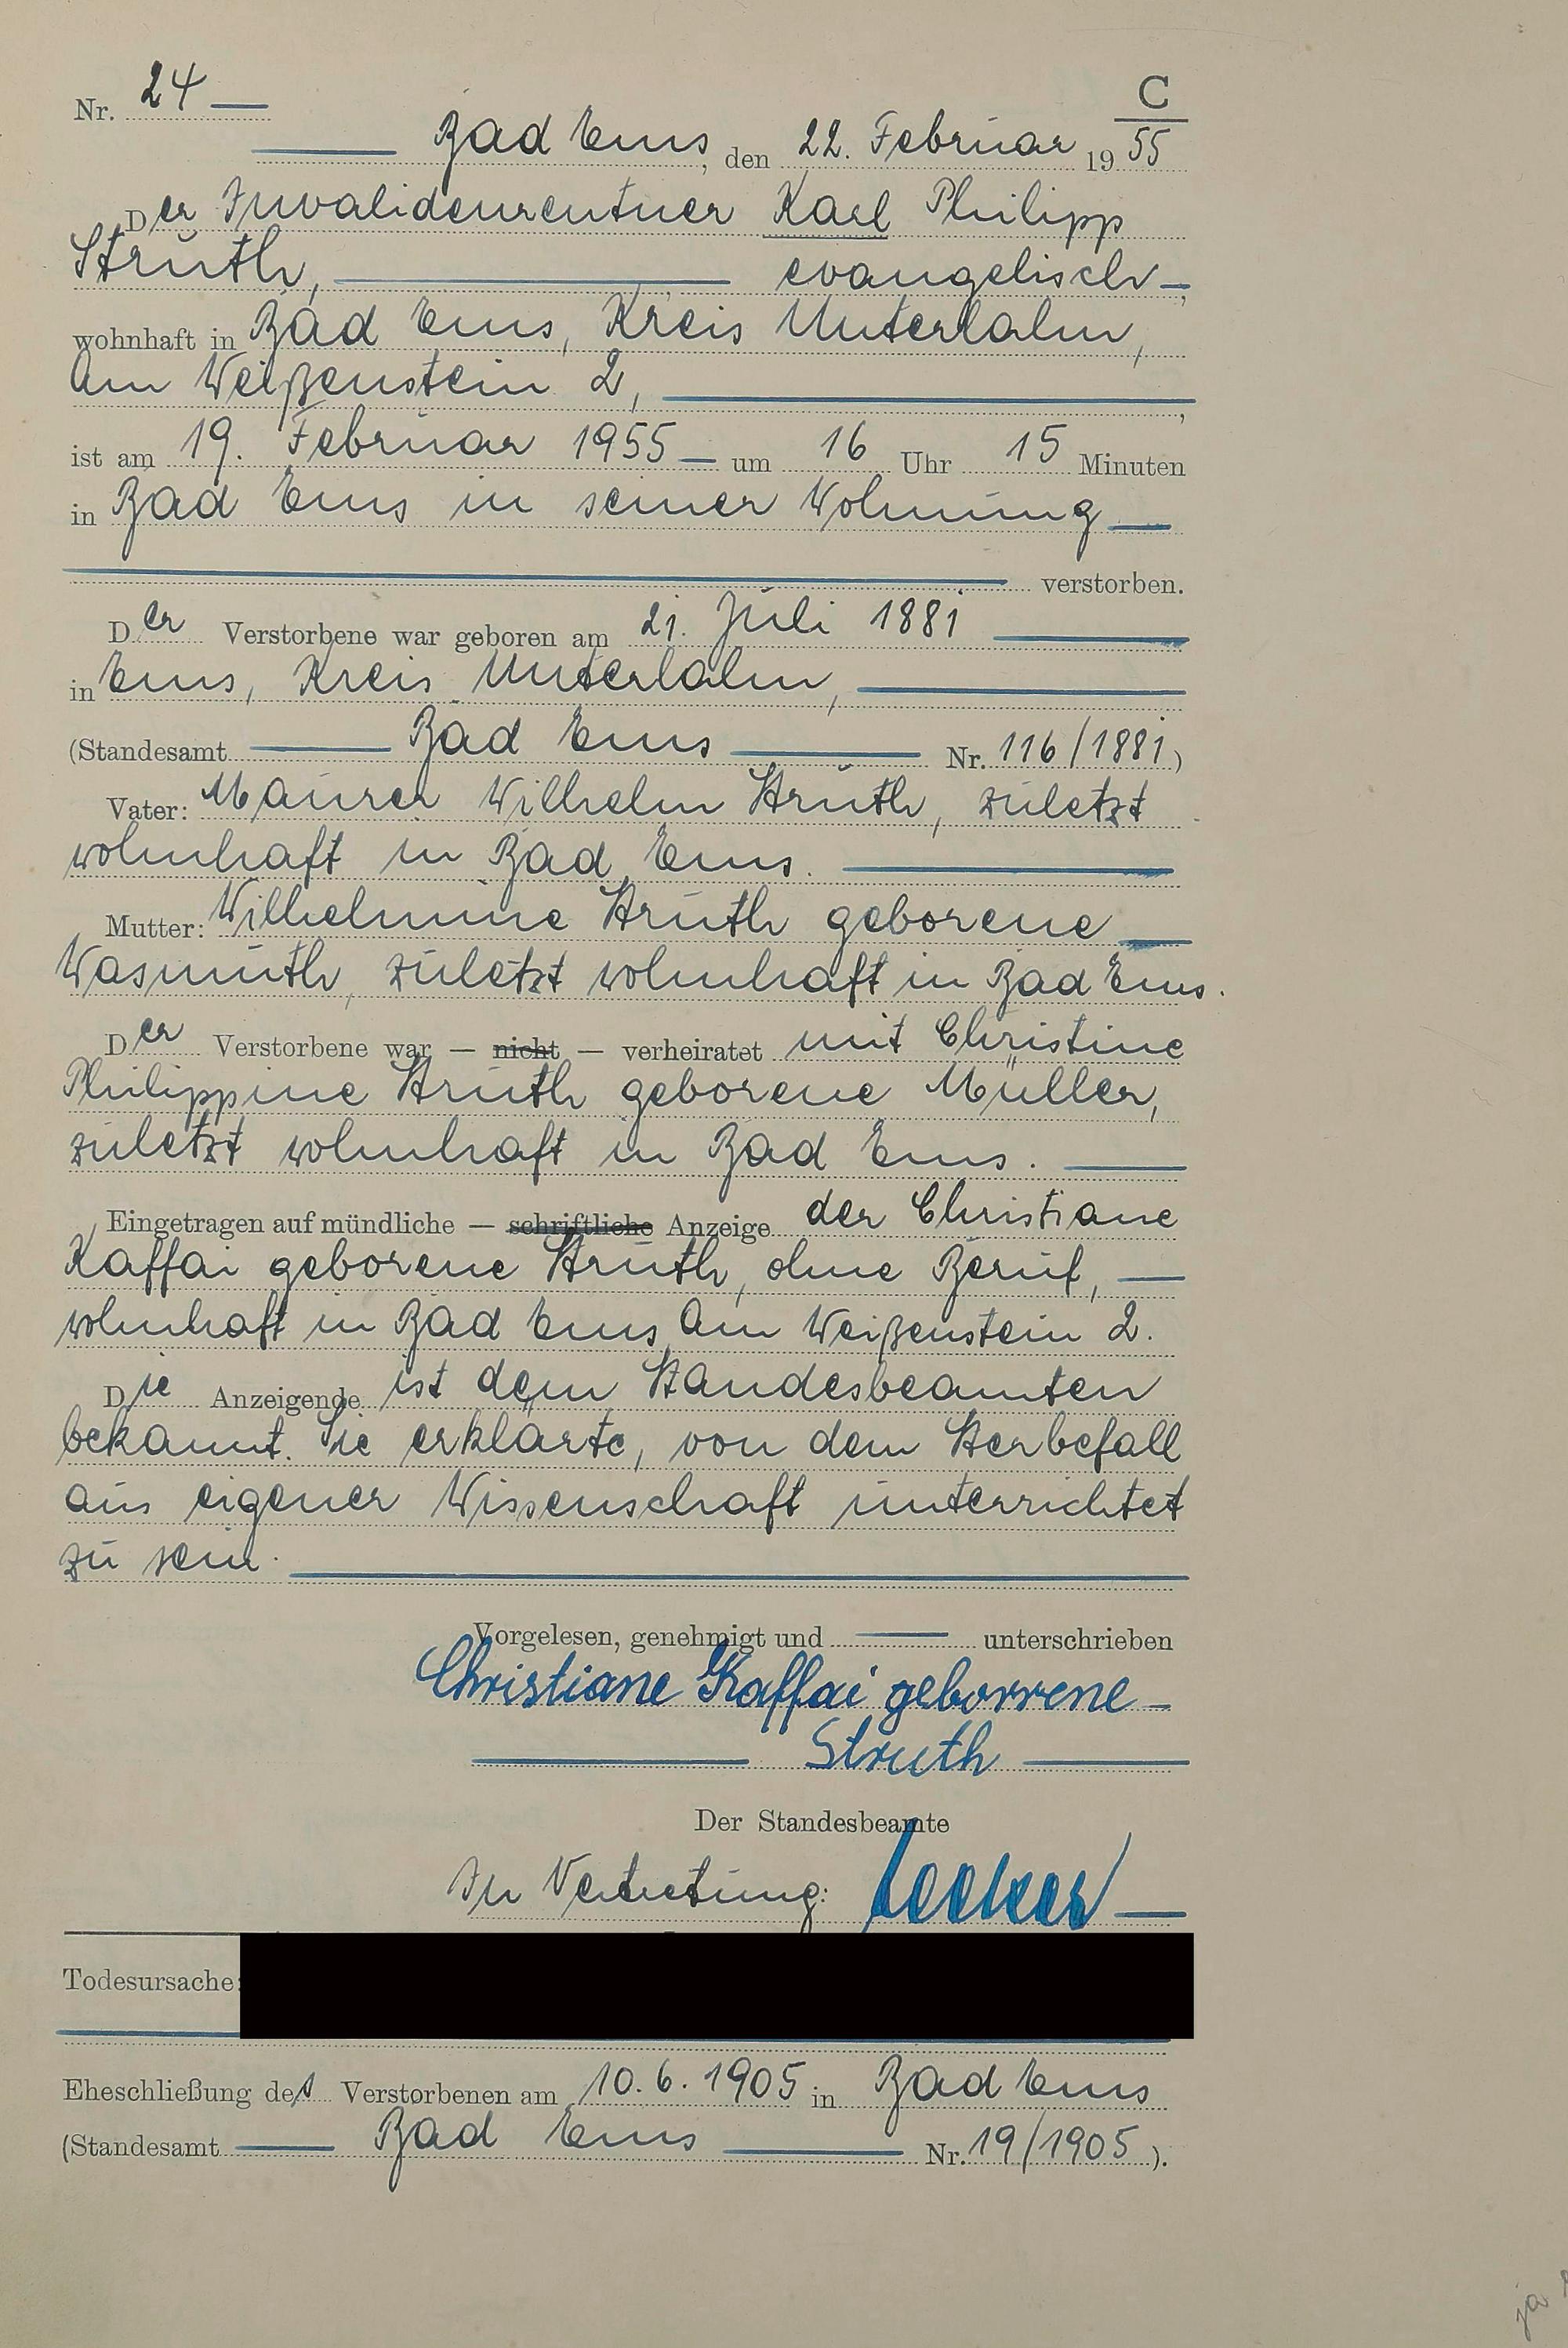 C
Nr. 24
Bad Ems, den 22. Februar 1955
Der Invalidenrentner Karl Philipp
Struth, evangelisch,
wohnhaft in Bad Ems, Kreis Unterlahn,
Am Weißenstein 2,
ist am 19. Februar 1955 um 16 Uhr 15 Minuten
in Bad Ems in seiner Wohnung
verstorben.
Der Verstorbene war geboren am 21. Juli 1881
in Ems, Kreis Unterlahn,
(Standesamt Bad Ems Nr. 116/1881)
Vater: Maurer Wilhelm Struth, zuletzt
wohnhaft in Bad Ems.
Mutter: Wilhelmine Struth geborene
Wasmuth, zuletzt wohnhaft in Bad Ems.
Der Verstorbene war — nicht — verheiratet mit Christine
Philippine Struth geborene Müller,
zuletzt wohnhaft in Bad Ems.
Eingetragen auf mündliche — schriftliche Anzeige der Christiane
Kaffai geborene Struth, ohne Beruf,
wohnhaft in Bad Ems Am Weißenstein 2.
Die Anzeigende ist dem Standesbeamten
bekannt. Sie erklärte, von dem Sterbefall
aus eigener Wissenschaft unterrichtet
zu sein.
Vorgelesen, genehmigt und unterschrieben
Christiane Kaffai geborrene
Struth
Der Standesbeamte
In Vertretung:
Todesursache:
Eheschließung des Verstorbenen am 10.6.1905 in Bad Ems
(Standesamt Bad Ems Nr. 19/1905).
ja